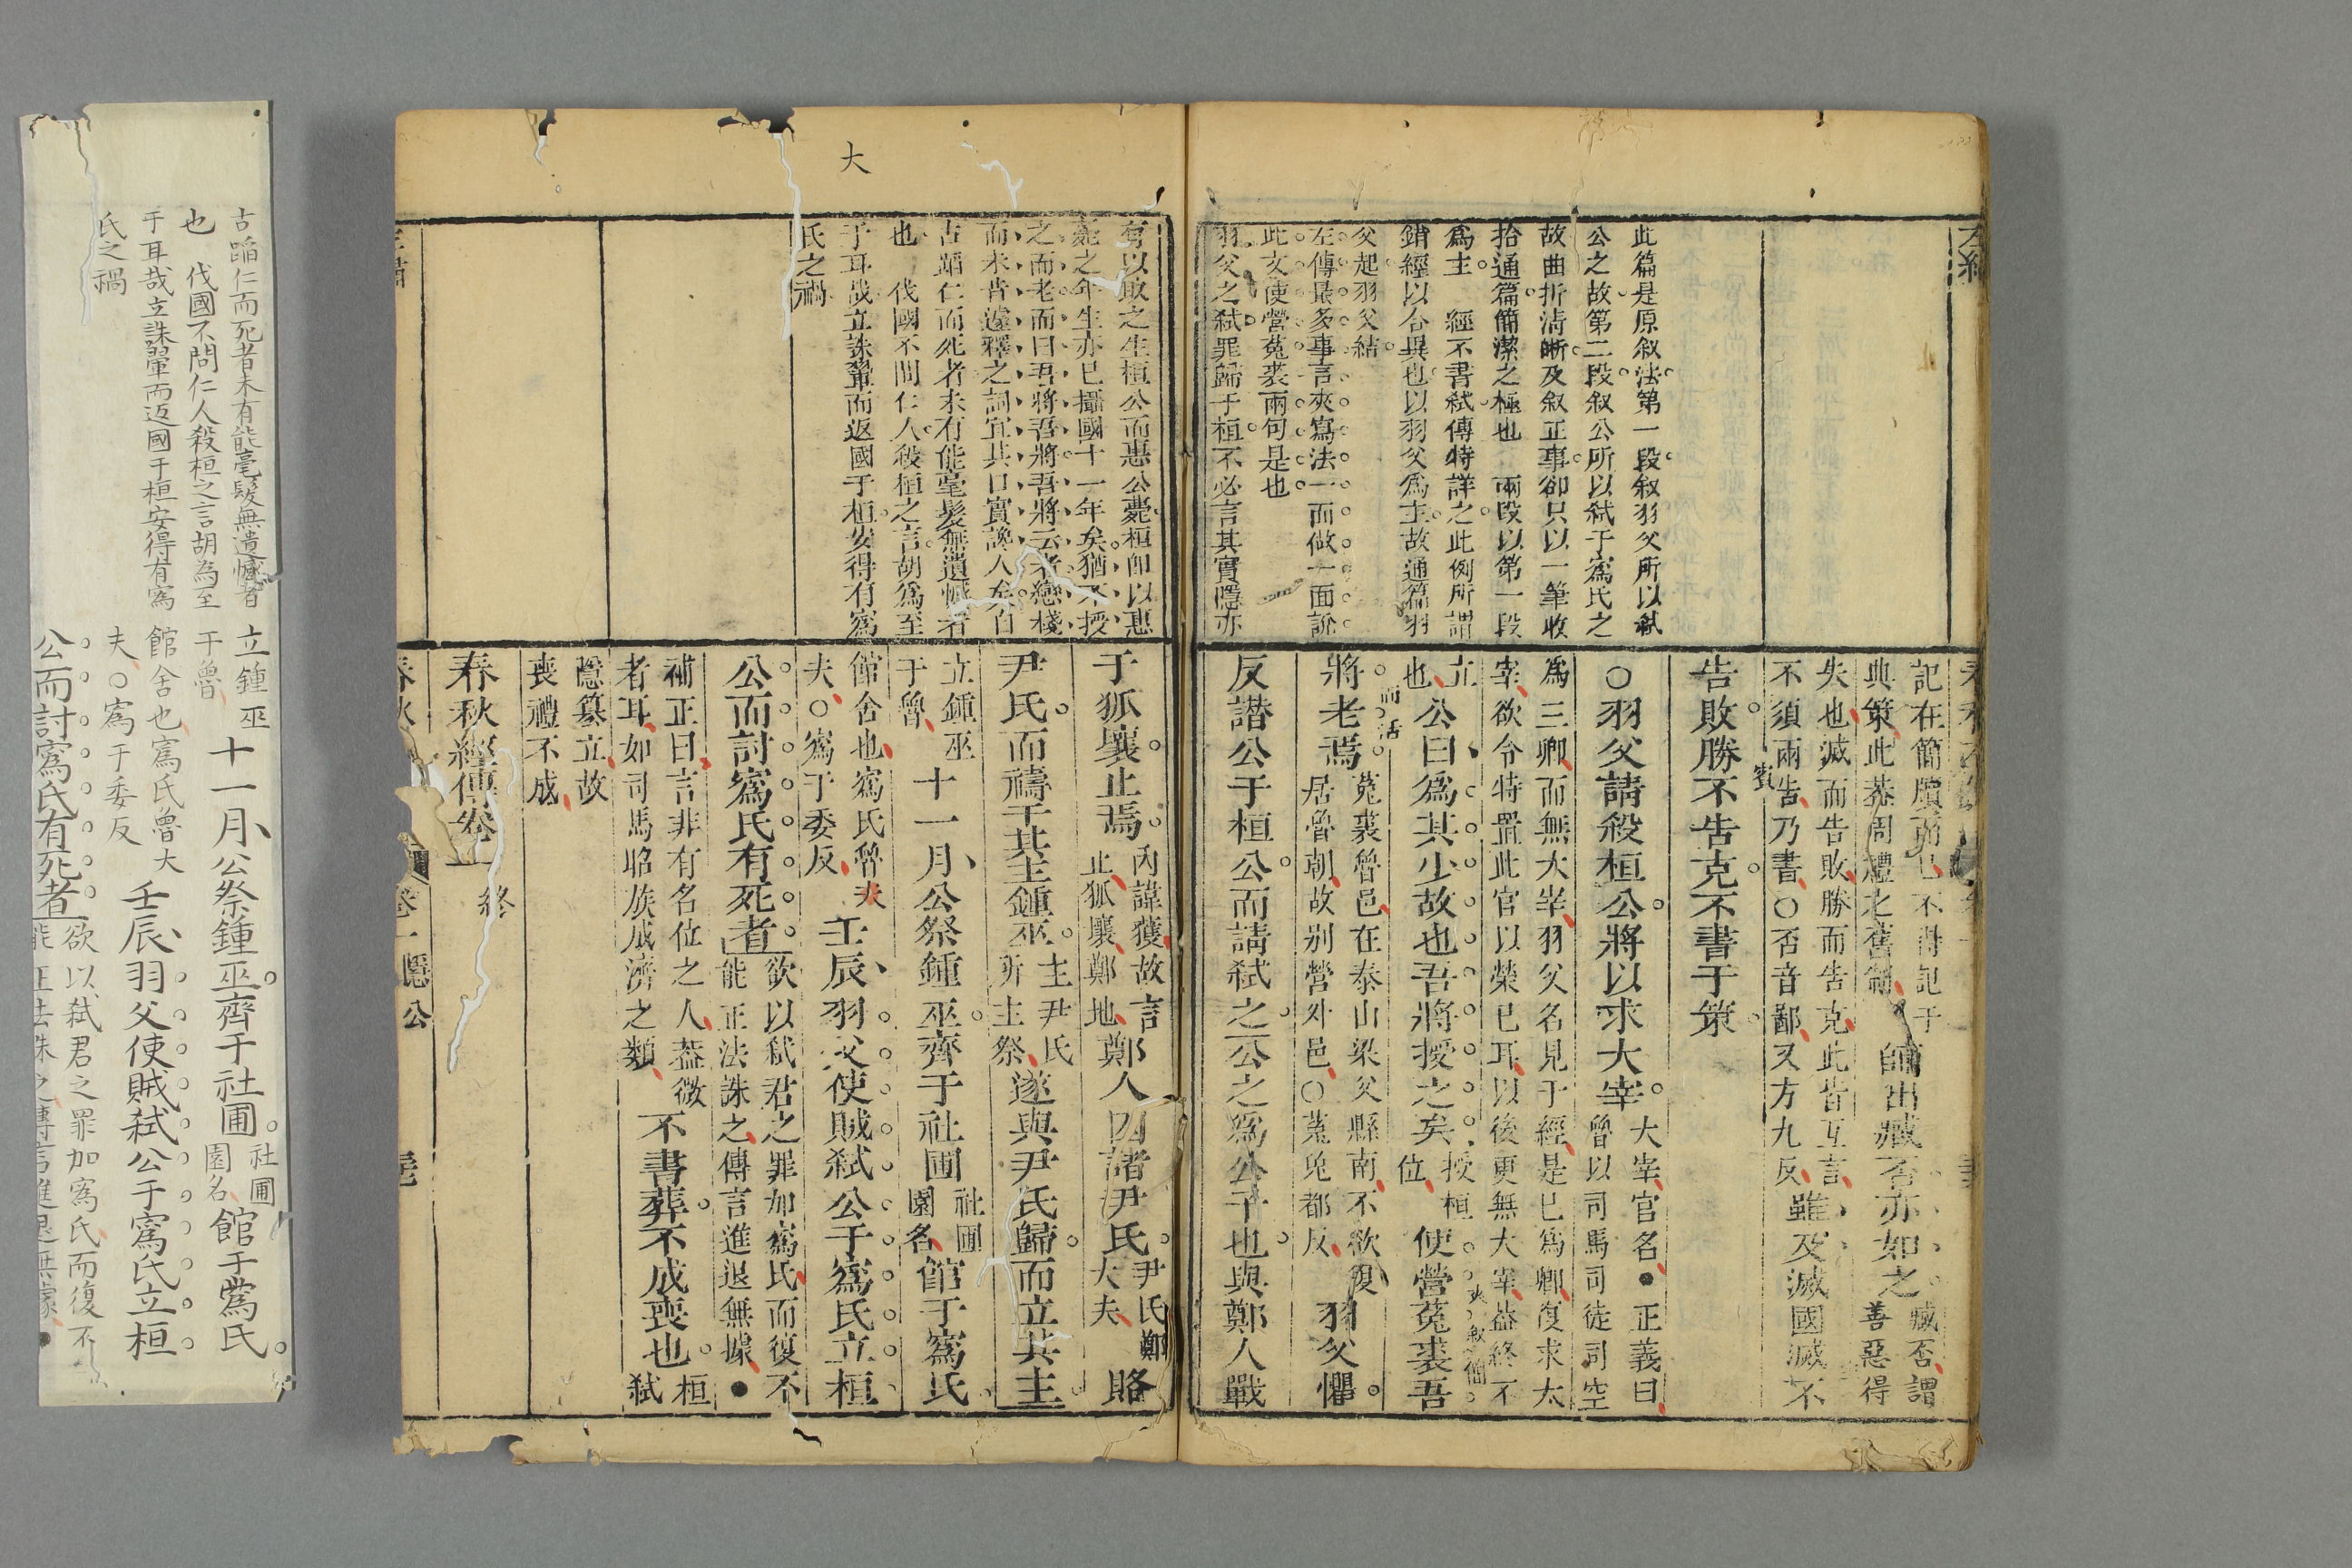 此篇是原叙法第一段叙羽父所以弑
公之故第二段叙公所以弑于寪氏之
故曲折清晰及叙正事卻只以一筆收
拾通篇簡潔之極也 兩段以第一段
爲主 經不書弑傳特詳之此例所謂
錯經以合異也以羽父爲主故通篇羽
父起羽父結
左傳最多事言夾寫法一面做一面訟
此文使營菟裘兩句是也
羽父之弑罪歸于桓不必言其實隱亦
記在簡牘而已不得記于
典策此蓋周禮之舊制
師出臧否亦如之
臧否謂
善惡得
失也滅而告敗勝而告克此皆互言
不須兩告乃書○否音鄙又方九反
雖及滅國滅不
告敗勝不告克不書于策
○羽父請殺桓公將以求大宰
大宰官名●正義曰
魯以司馬司徒司空
爲三卿而無大宰羽父名見于經是已爲卿復求大
宰欲令特置此官以榮已耳以後更無大宰益終不
立
也
公曰爲其少故也吾將授之矣
授桓
位
使營菟裘吾
將老焉
菟裘魯邑在泰山梁父縣南不欲復
居魯朝故别營外邑○菟兎都反
羽父懼
反譖公于桓公而請弑之公之爲公子也與鄭人戰
大
有以啟之生桓公而惠公薨桓卽以惠
薨之年生亦已攝國十一年矣猶不授
之而老而曰吾將吾將吾將云者戀棧
而未肯遽釋之詞宜其口實讒人矣自
古蹈仁而死者未有能毫髮無遺憾者
也 伐國不問仁人殺桓之言胡爲至
于耳哉立誅翬而返國于桓安得有寪
氏之禍
于狐壤止焉
內諱獲故言
止狐壤鄭地
鄭人囚諸尹氏
尹氏鄭
大夫
賂
尹氏而禱于其主鍾巫
主尹氏
所主祭
遂與尹氏歸而立其主
立鍾巫
于魯
十一月公祭鍾巫齊于社圃
社圃
園名
館于寪氏
館舍也寪氏魯大
夫○寪于委反
壬辰羽父使賊弑公于寪氏立桓
公而討寪氏有死者
欲以弑君之罪加寪氏而復不
能正法誅之傳言進退無據●
補正曰言非有名位之人葢微
者耳如司馬昭族成濟之類
不書葬不成喪也
桓
弑
隱簒立故
喪禮不成
春秋經傳卷一 終
卷一 隱公
古蹈仁而死者未有能毫髮無遺憾者
也 伐國不問仁人殺桓之言胡為至
于耳哉立誅翬而返國于桓安得有寪
氏之禍
立鍾巫
于魯
十一月公祭鍾巫齊于社圃
社圃
園名
館于寪氏
館舍也寪氏魯大
夫○寪于委反
壬辰羽父使賊弑公于寪氏立桓
公而討寪氏有死者
欲以弑君之罪加寪氏而復不
能正法誅之傳言進退無據●